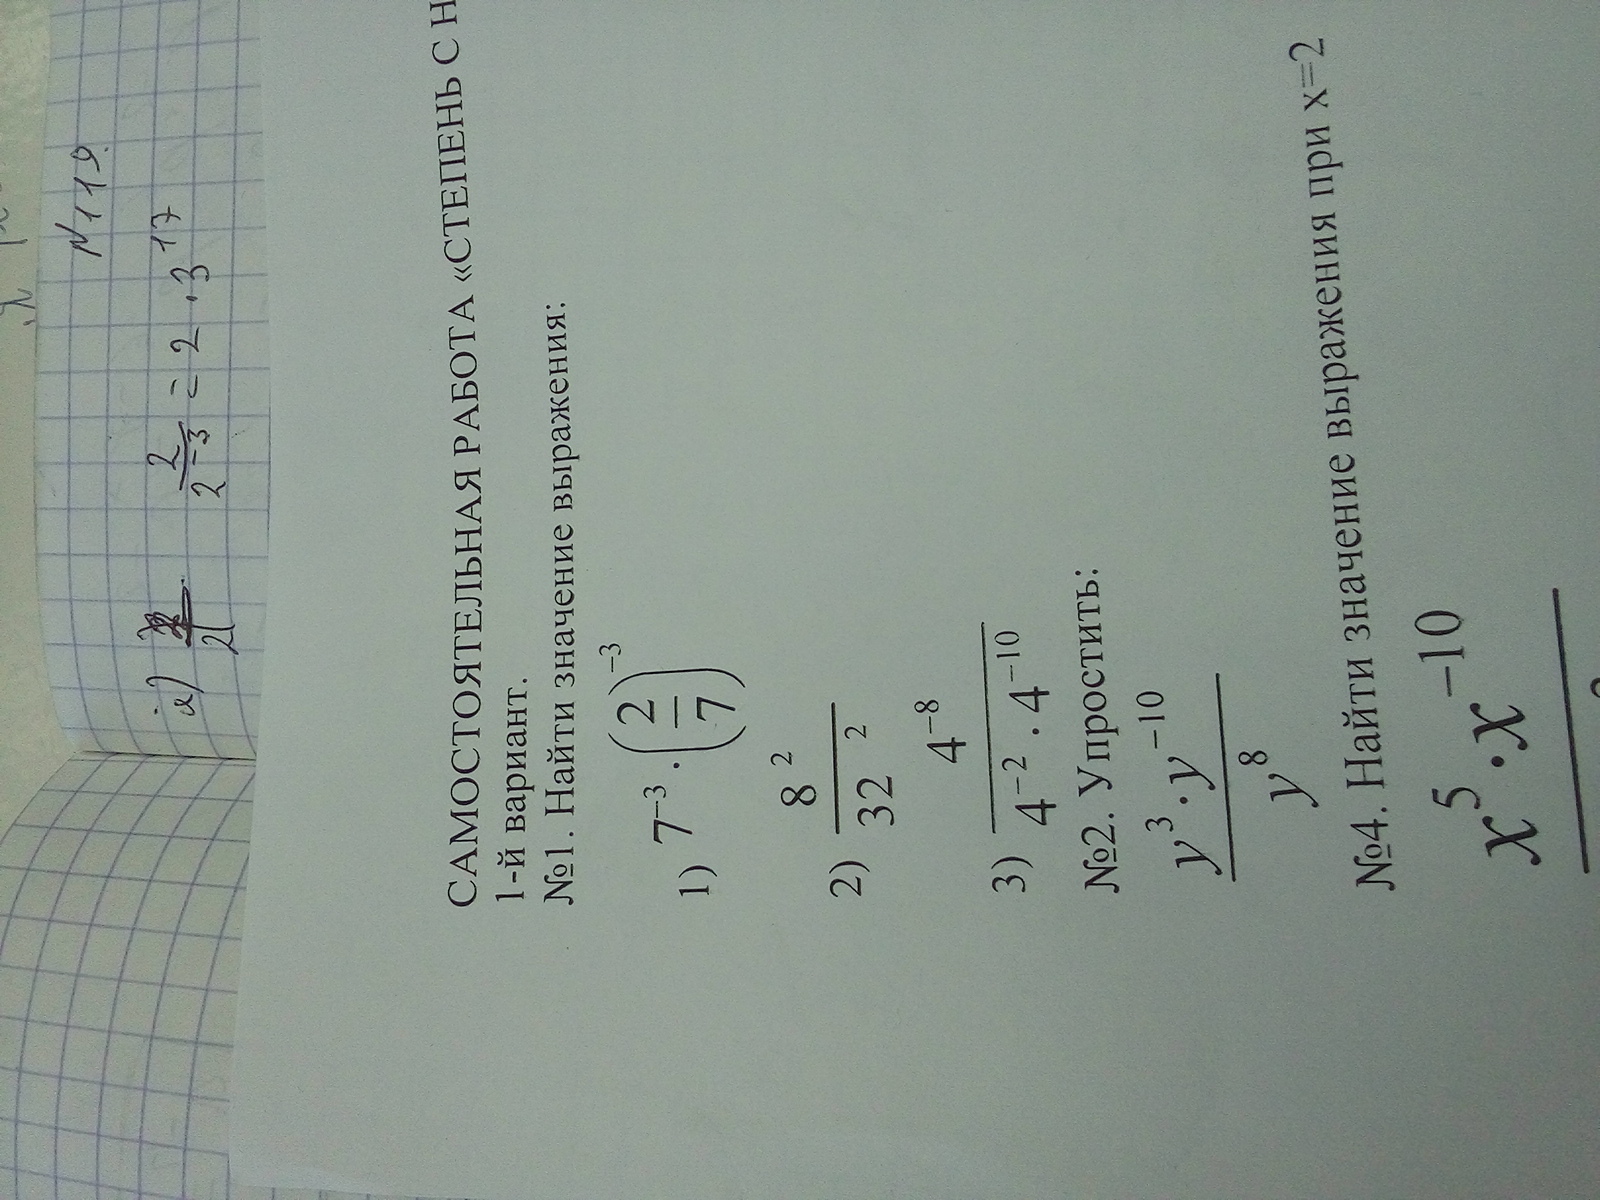 N119.
a) 2/2^-3 = 2 · 3^17
САМОСТОЯТЕЛЬНАЯ РАБОТА «СТЕПЕНЬ С Н
1-й вариант.
№1. Найти значение выражения:
1) 7^-3 · (2/7)^-3
2) 8^2 / 32^2
3) 4^-8 / (4^-2 · 4^-10)
№2. Упростить:
y^3 · y^-10 / y^8
№4. Найти значение выражения при x=2
x^5 · x^-10